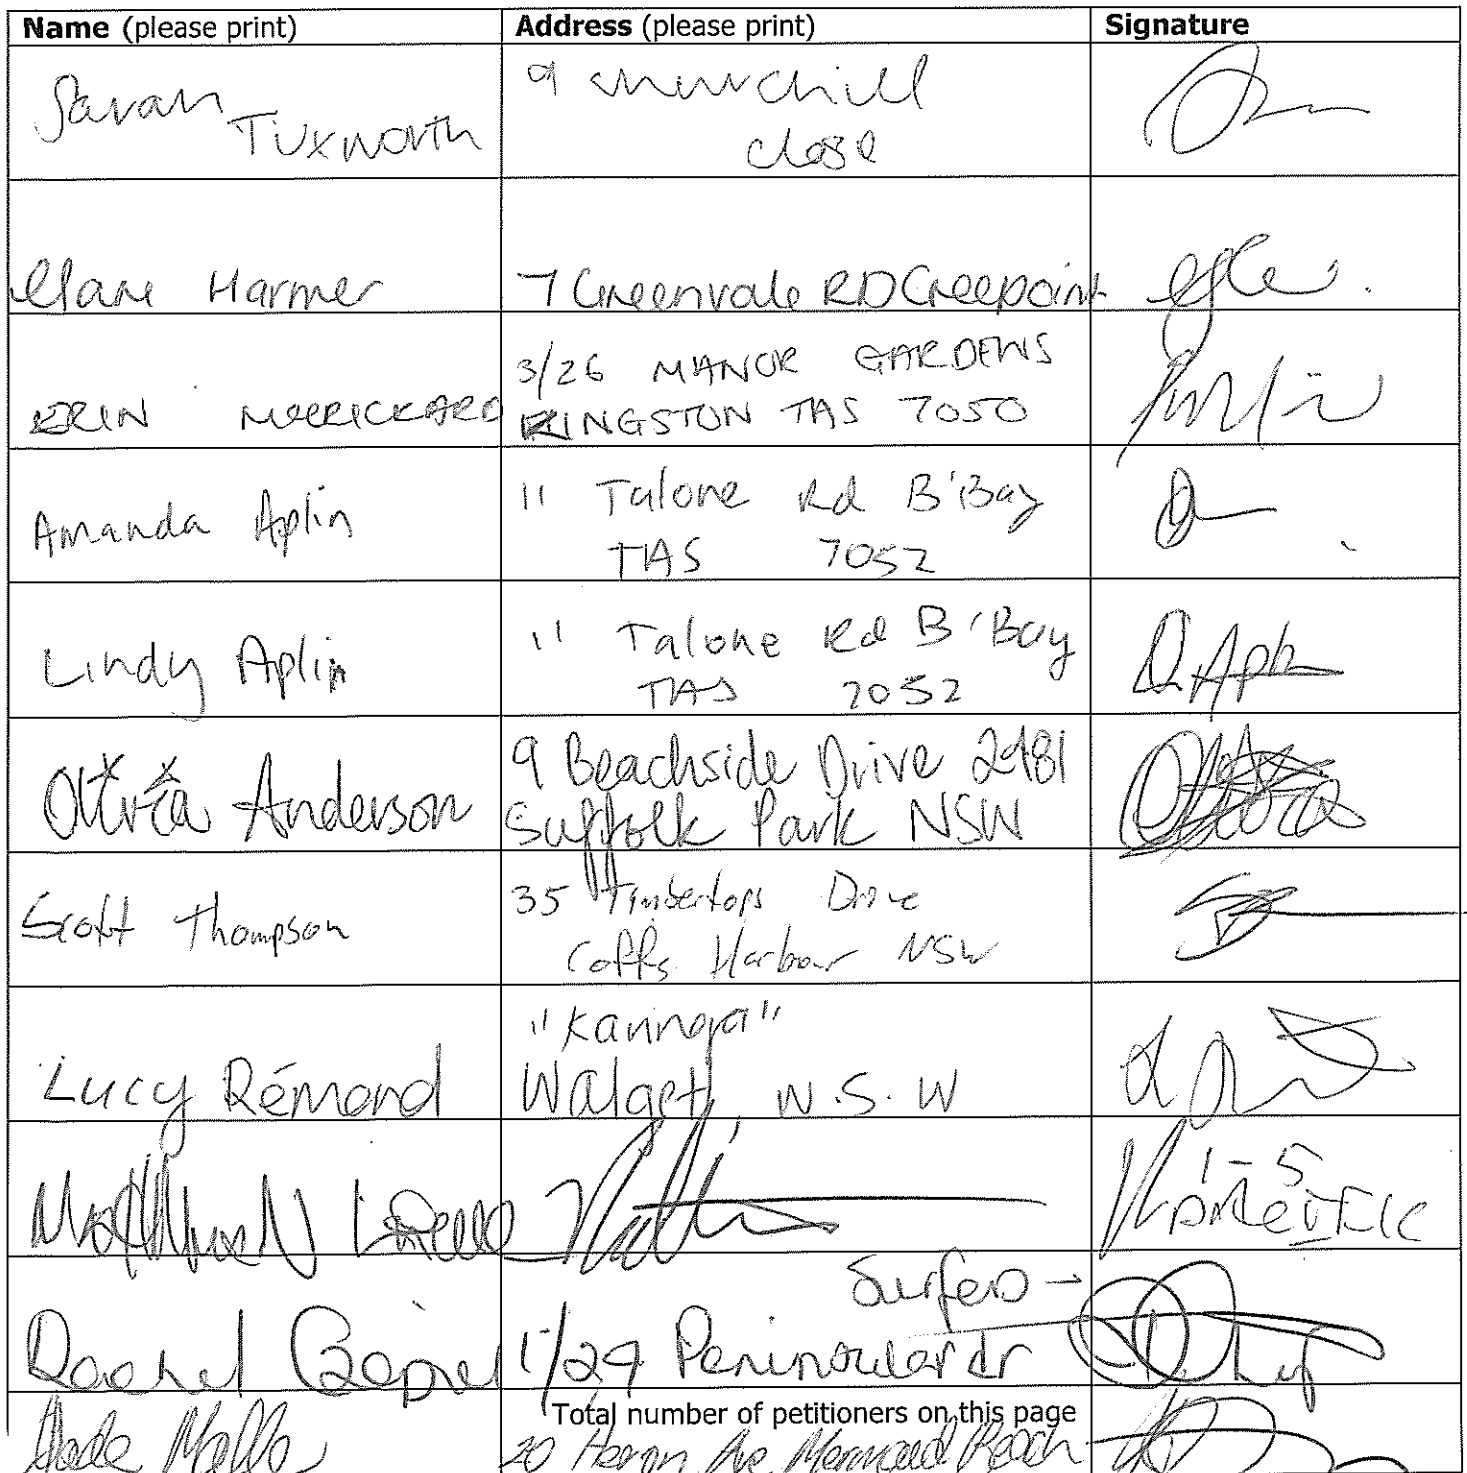 Name (please print) Address (please print) Signature
Sarah Tuxworth 9 Churchill
Close
Clare Harmer 7 Greenvale RD Creepoint
ERIN MERRICKARD 3/26 MANOR GARDENS
KINGSTON TAS 7050
Amanda Aplin 11 Talone Rd B'Bay
TAS 7052
Lindy Aplin 11 Talone Rd B'Bay
TAS 7052
Olivia Anderson 9 Beachside Drive 2481
Suffolk Park NSW
Scott Thompson 35 Timbertops Drive
Coffs Harbour NSW
Lucy Rémond "Karinga"
Walgett, N.S.W
1-5
Surfers →
Rachel 1/29 Peninsular dr
Total number of petitioners on this page
20 Heron Ave Mermaid Beach